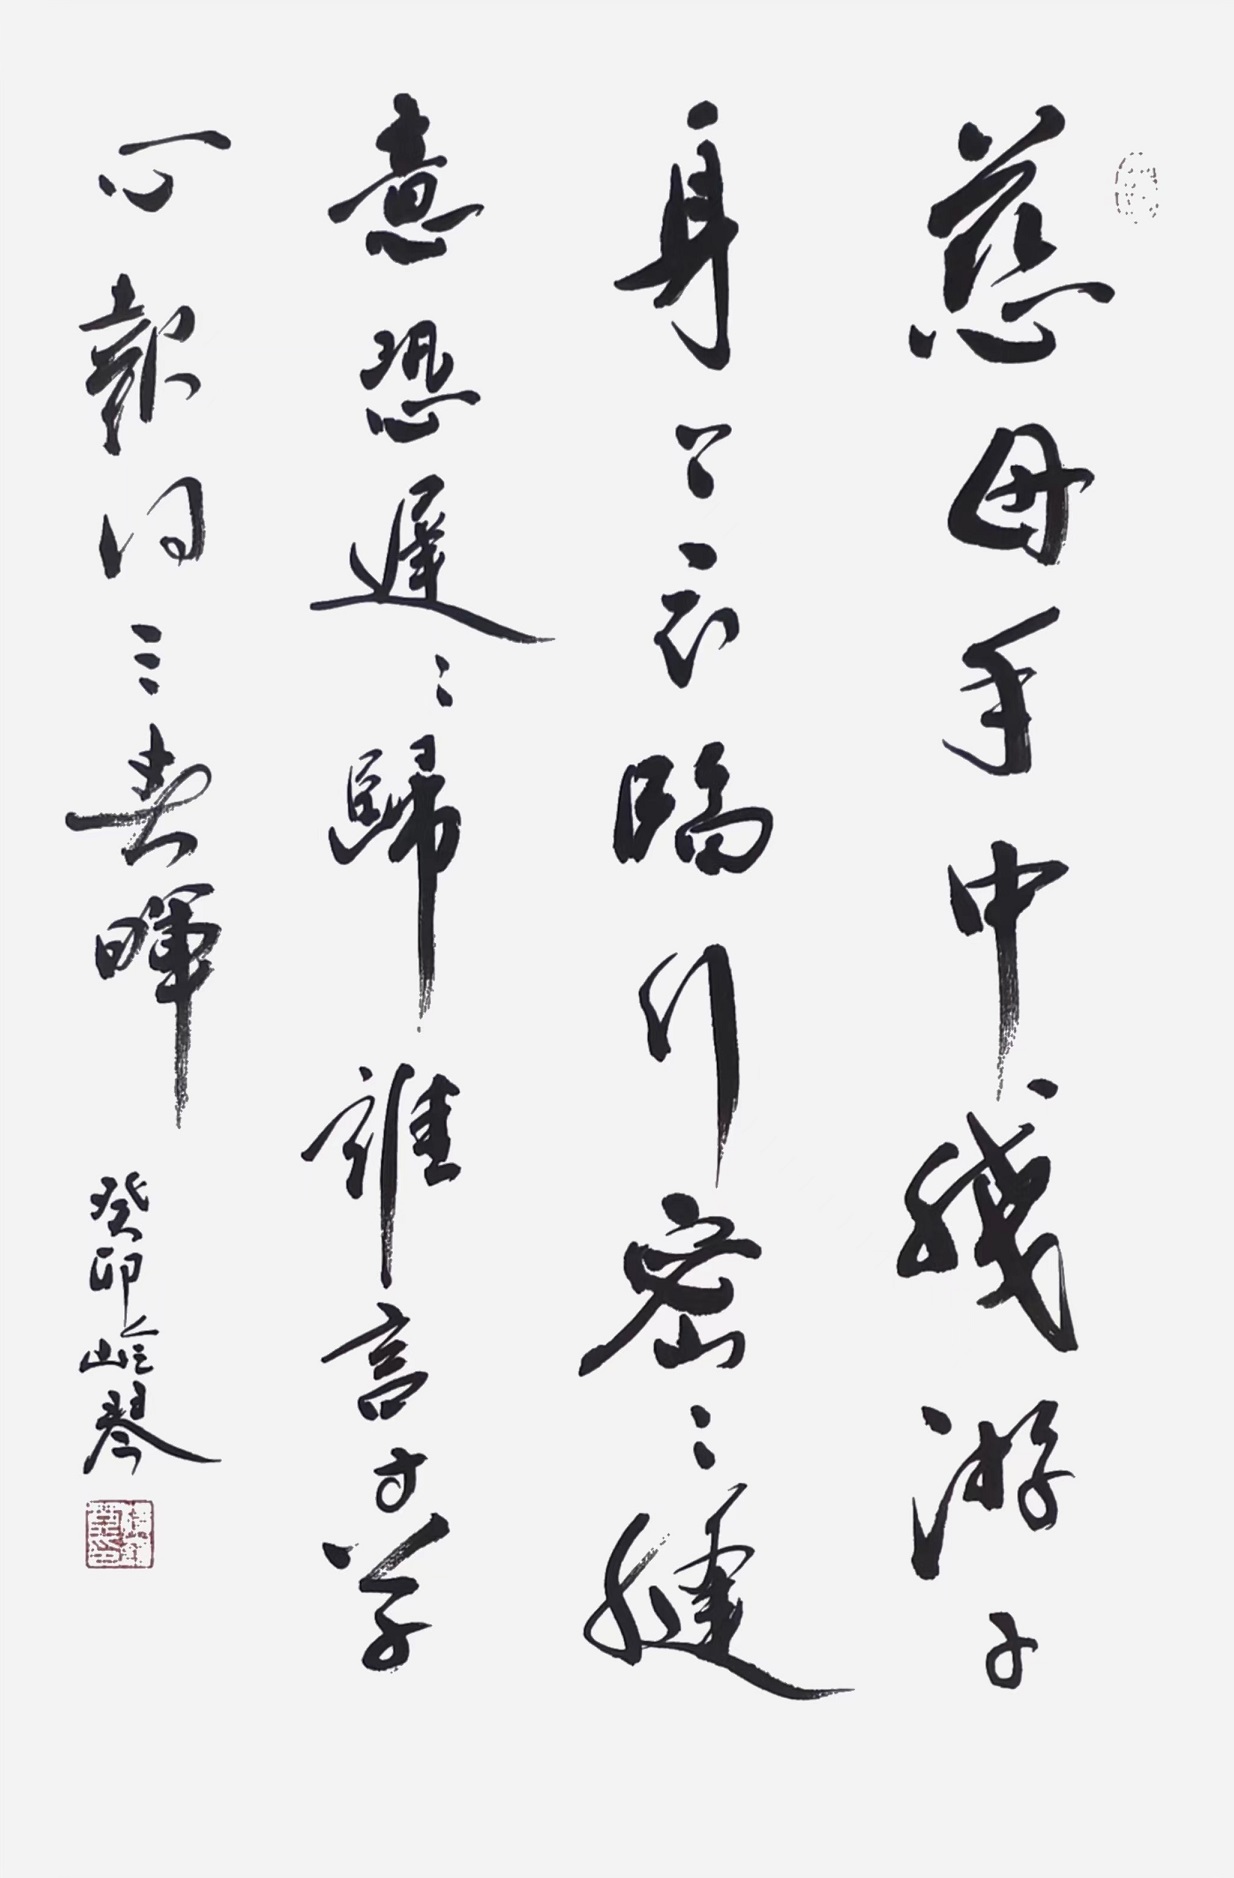 慈母手中綫游子
身上衣臨行密〻縫
意恐遲〻歸誰言寸草
心報得三春暉
癸卯琴